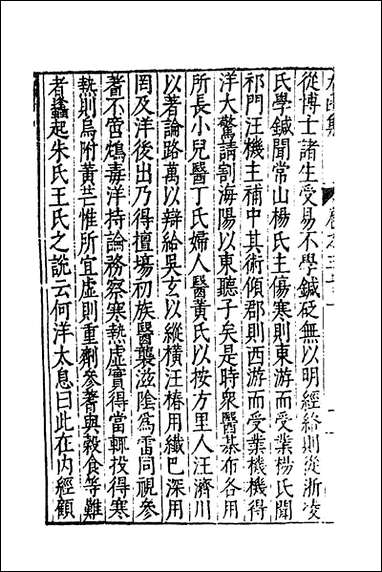 從博士諸生受易不學鍼砭無以明經絡則從浙凌
氏學鍼聞常山楊氏主傷寒則東游而受業楊氏聞
祁門汪機主補中其術傾郡則西游而受業機機得
洋大驚請割海陽以東聽子矣是時衆醫棊布各用
所長小兒醫丁氏婦人醫黃氏以按方里人汪濟川
以著論路萬以辯給吳玄以縱橫汪椿用纖巴深用
罔及洋後出乃得擅塲初族醫襲滋隂為雷同視參
蓍不啻鴆毒洋持論務察寒熱虛實得當輒投得寒
熱則烏附黃芩惟所宜虛則重劑參蓍與榖食等難
者蠭起朱氏王氏之說云何洋太息曰此在内經顧